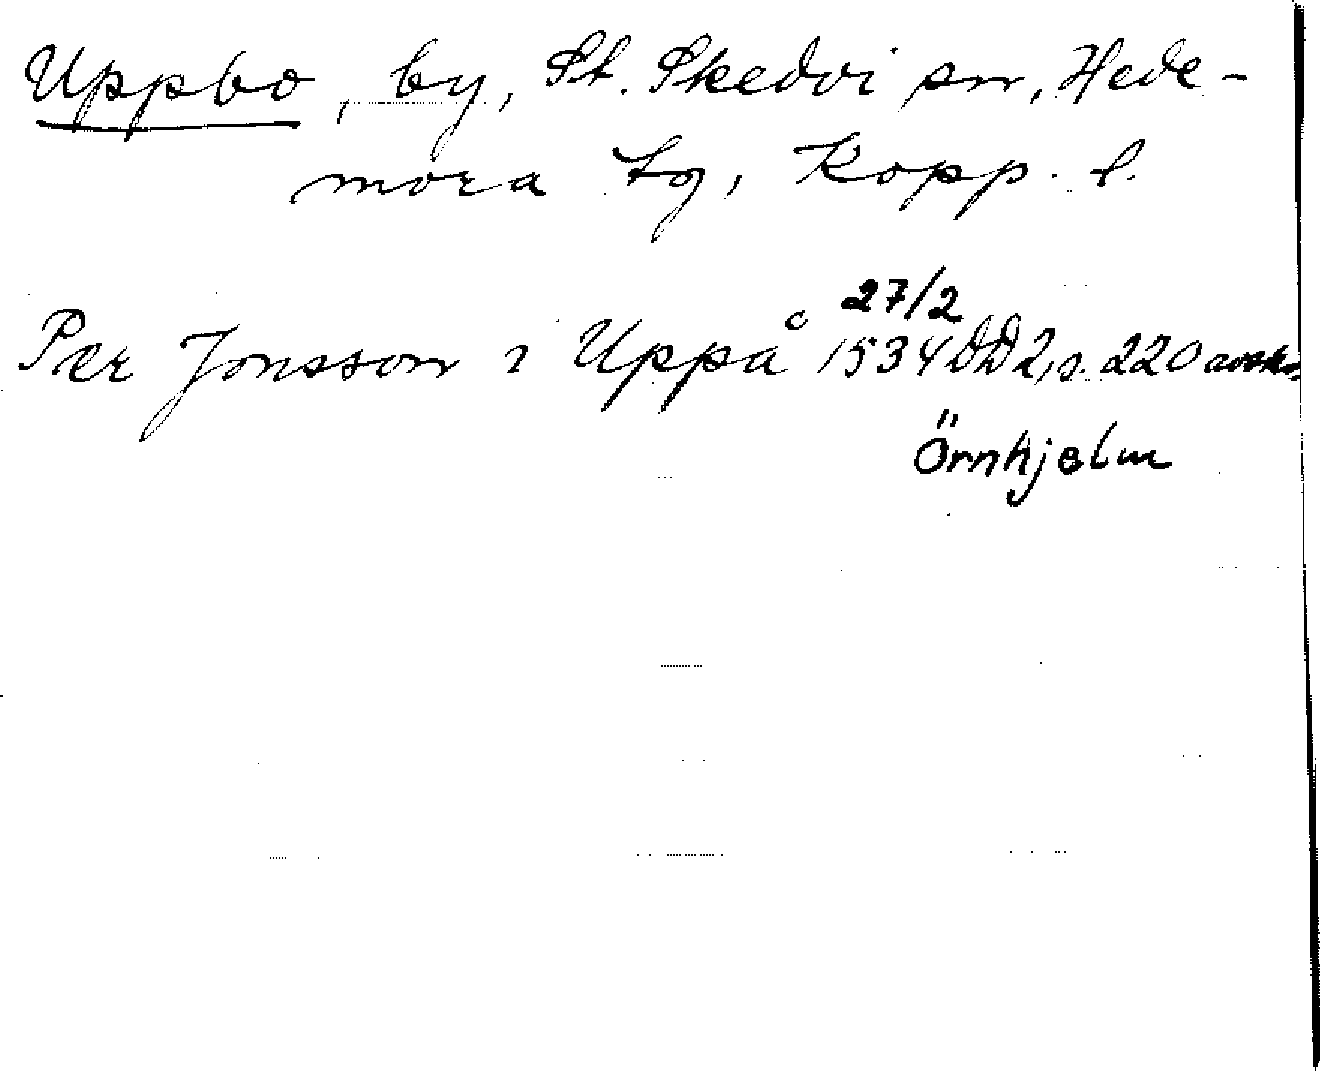 Uppbo, by, St. Skedvi sn, Hede-
mora tg, Kopp. l.
Per Jonsson i Uppå 27/2 1534 DD 2, s. 220 avskr.
Örnhjelm